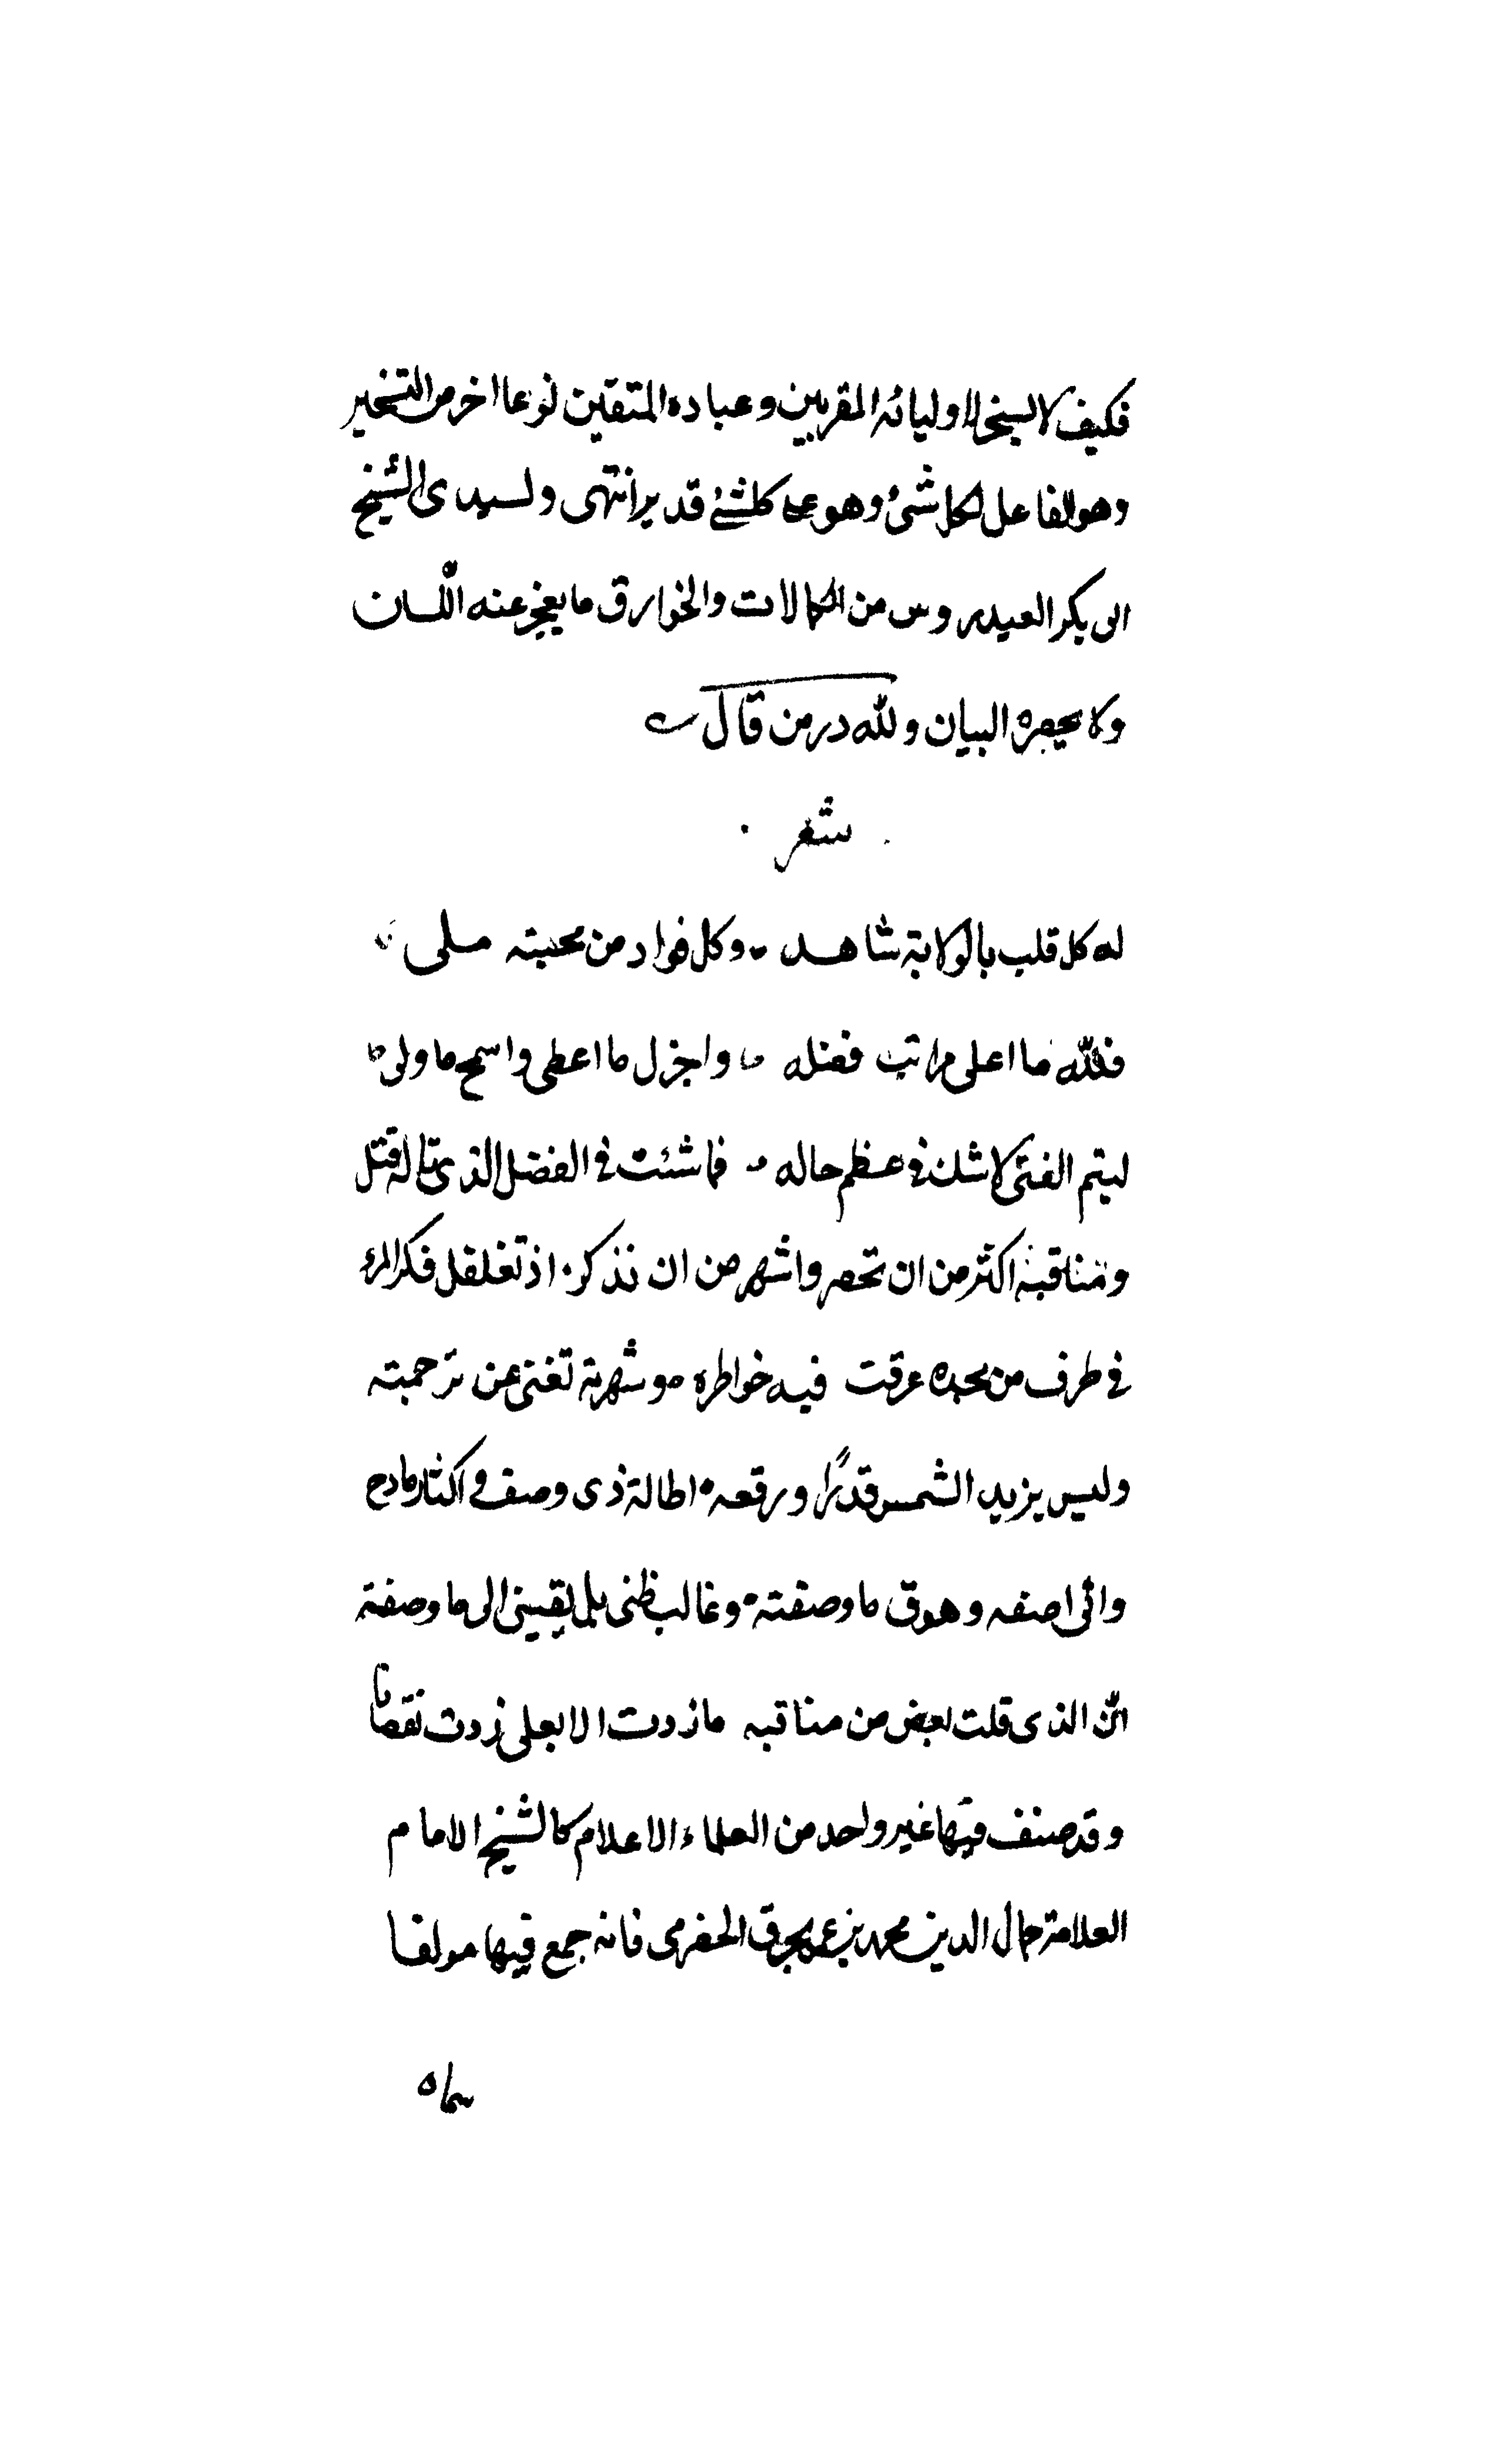 فكيف لا يسخر لاوليائه المقربين وعباده المتقين نوعا اخر من التسخير
وهو الفاعل لكل شئ وهو على كلشئ قدير انتهى ولسيدى الشيخ
ابى بكر العيدروس من الكمالات والخوارق ما يعجز عنه اللسان
ولا يحصره البيان ولله در من قال
شعر
له كل قلب بالولاية شاهد وكل فواد من محبته ملى
فلله ما اعلى مراتب فضله واجزل ما اعطى واسمح ما ولى
ليتم الفتى لا شك فى عظم حاله فما شئت فى الفضل الذى ناله قتل
ومناقبه اكثر من ان تحصر واشهر من ان نذكر اذ تغلغل فكر المرء
فى طرف من مجده غرقت فيه خواطره وشهرته تغنى عن ترجمته
وليس يزيد الشمس قدرًا ورفعه اطالة ذى وصف واكثار مادح
وانى اصفه وهو فوق ما وصفته وغالب ظنى بل يقينى الى ما وصفته
ان الذى قلت بعض من مناقبه ما زدت الا لعلى زدت نقصانا
وقد صنف فيها غير واحد من العلماء الاعلام كالشيخ الامام
العلامة جمال الدين محمد بن عمر بحرق الحضرمى فانه جمع فيها مولفا
سماه